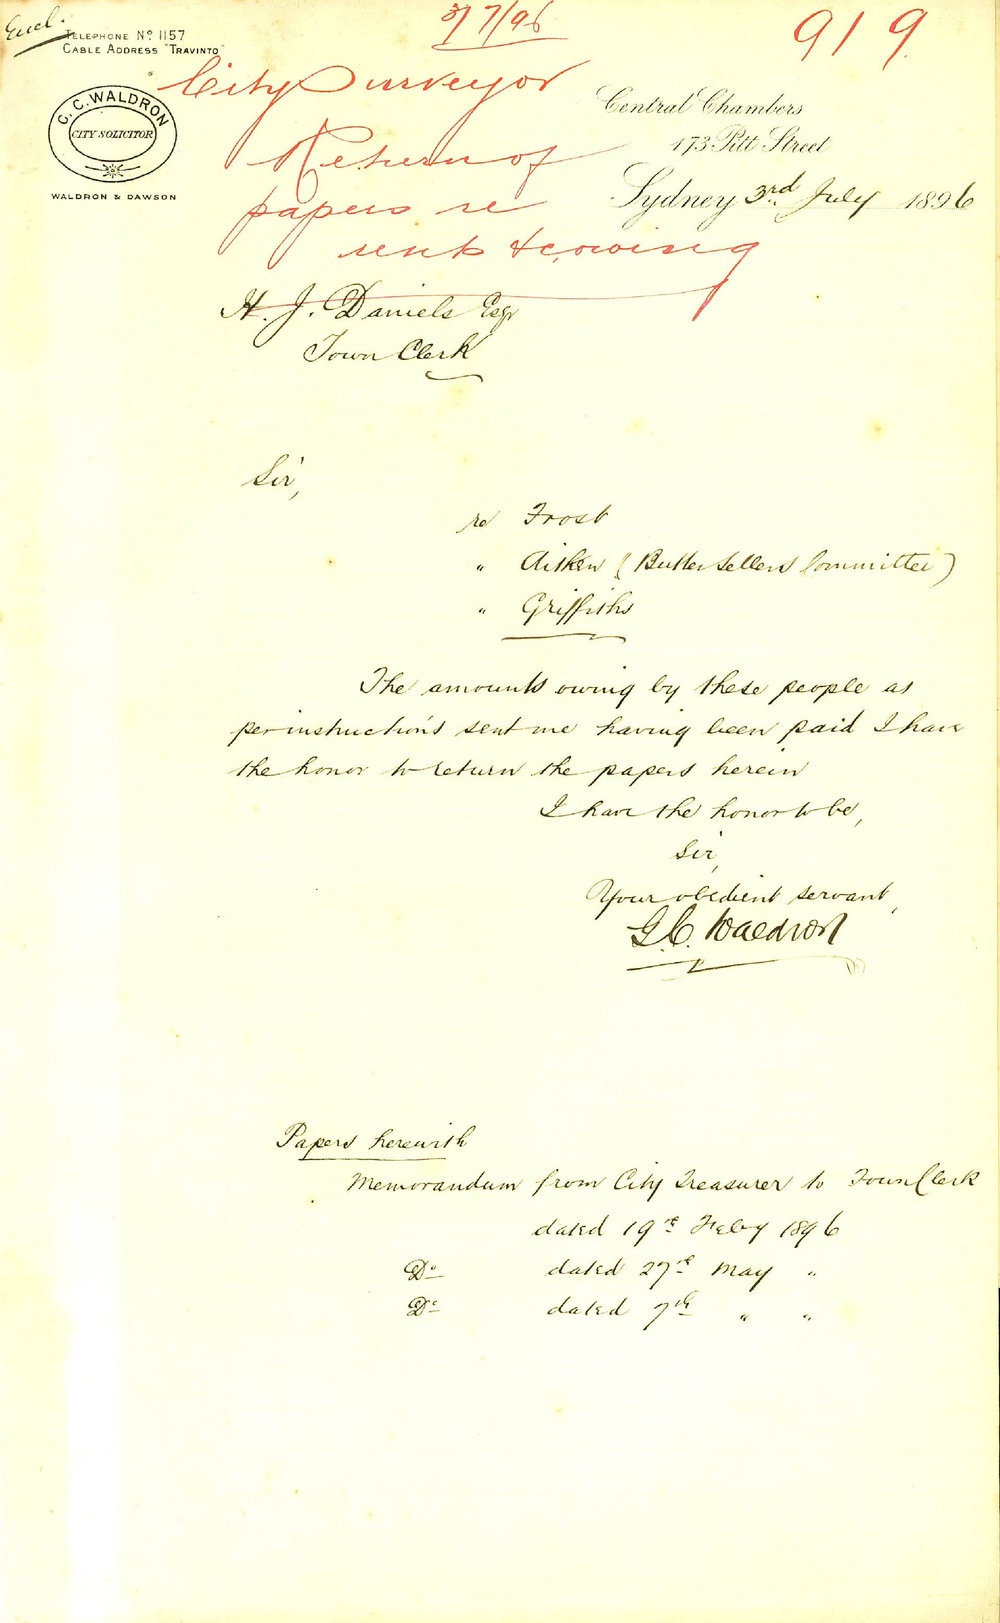 Encl.
TELEPHONE No 1157
CABLE ADDRESS "TRAVINTO"
C. C. WALDRON
CITY SOLICITOR
WALDRON & DAWSON
3/7/96
919
City Surveyor
Return of
papers re
rent &c owing
Central Chambers
173 Pitt Street
Sydney 3rd July 1896
H. J. Daniels Esqr
Town Clerk
Sir,
re Frost
" Aitken (Butter Sellers Committee)
" Griffiths
The amounts owing by these people as
per instructions sent me having been paid I have
the honor to return the papers herein
I have the honor to be,
Sir,
Your obedient servant,
G. C. Waldron
Papers herewith
Memorandum from City Treasurer to Town Clerk
dated 19th Feby 1896
Do dated 27th May "
Do dated 7th " "